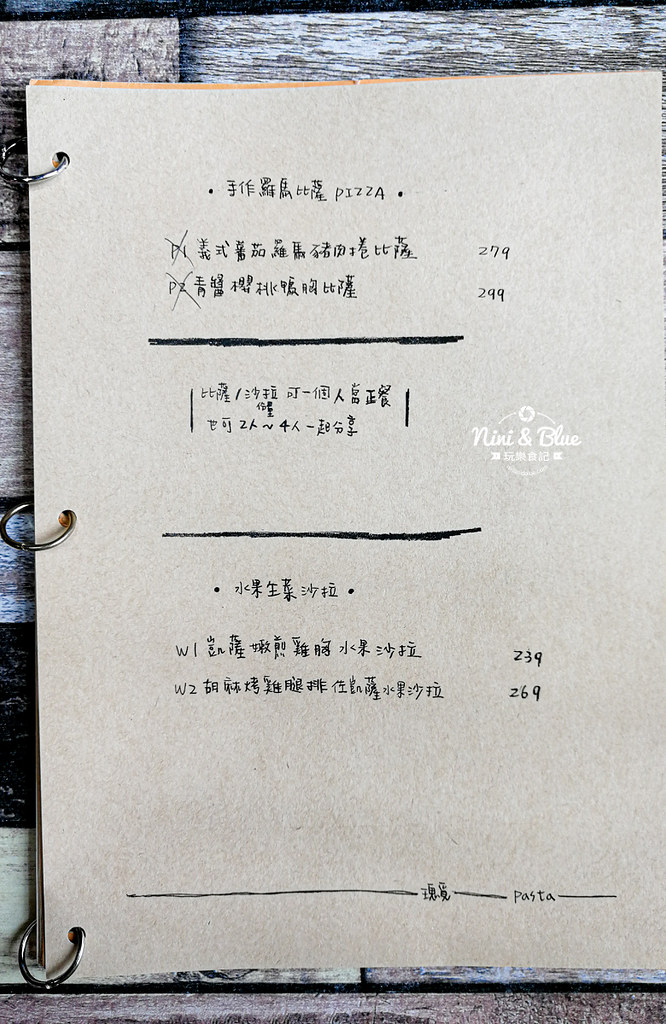 • 手作羅馬比薩 PIZZA •
P1 義式蕃茄羅馬豬肉捲比薩 279
P2 青醬櫻桃鴨胸比薩 299
比薩/沙拉 可一個人當正餐
份量
也可 2人~4人一起分享
Nini & Blue
玩樂食記
• 水果生菜沙拉 •
W1 凱薩嫩煎雞胸水果沙拉 239
W2 胡麻烤雞腿排佐凱薩水果沙拉 269
瑰覓 Pasta